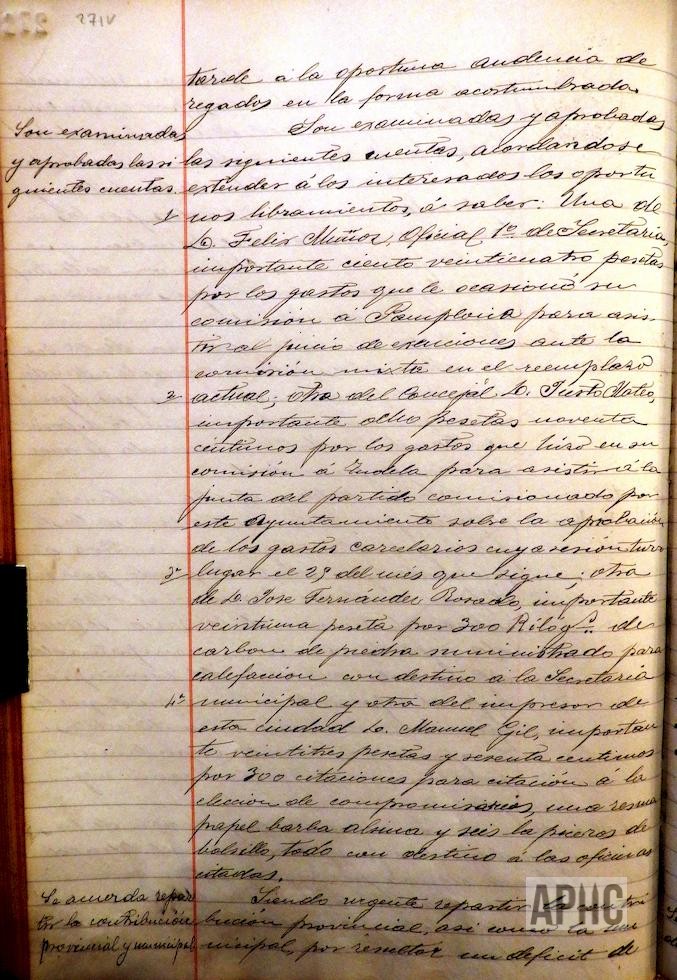 271V
tarde á la oportuna audencia de
regados en la forma acostumbrada.
Son examinadas y aprobadas
Son examinadas
y aprobadas las si
guientes cuentas.
las siguientes cuentas, acordandose
extender á los interesados los oportu
1ª
nos libramientos, á saber: Una de
D. Felix Muñoz, Oficial 1º de Secretaria,
importante ciento veinticuatro pesetas
por los gastos que le ocasionó su
comisión á Pamplona para asis-
tir al juicio de exenciones ante la
comisión mixta en el reemplazo
2ª
actual; otra del Concejal D. Justo Mateo,
importante ocho pesetas noventa
centimos por los gastos que hizo en su
comisión á Tudela para asistir á la
junta del partido comisionado por
este Ayuntamiento sobre la aprobación
de los gastos carcelarios cuya sesión tuvo
3ª
lugar el 29 del mes que sigue; otra
de D. Jose Fernández Rosado, importante
veintiuna peseta por 300 Kilógs. de
carbon de piedra suministrado para
calefacion con destino á la Secretaria
4ª
municipal y otra del impresor de
esta ciudad D. Manuel Gil, importan
te veintitres pesetas y sesenta centimos
por 300 citaciones para citación á la
elección de compromisarios, una resma
papel barba alsina y seis lapiceros de
bolsillo, todo con destino á las oficinas
citadas.
Se acuerda repar
tir la contribución
provincial y municipal
Siendo urgente repartir la contri
bución provincial, así como la mu
nicipal, por resultar un deficit de
APHC